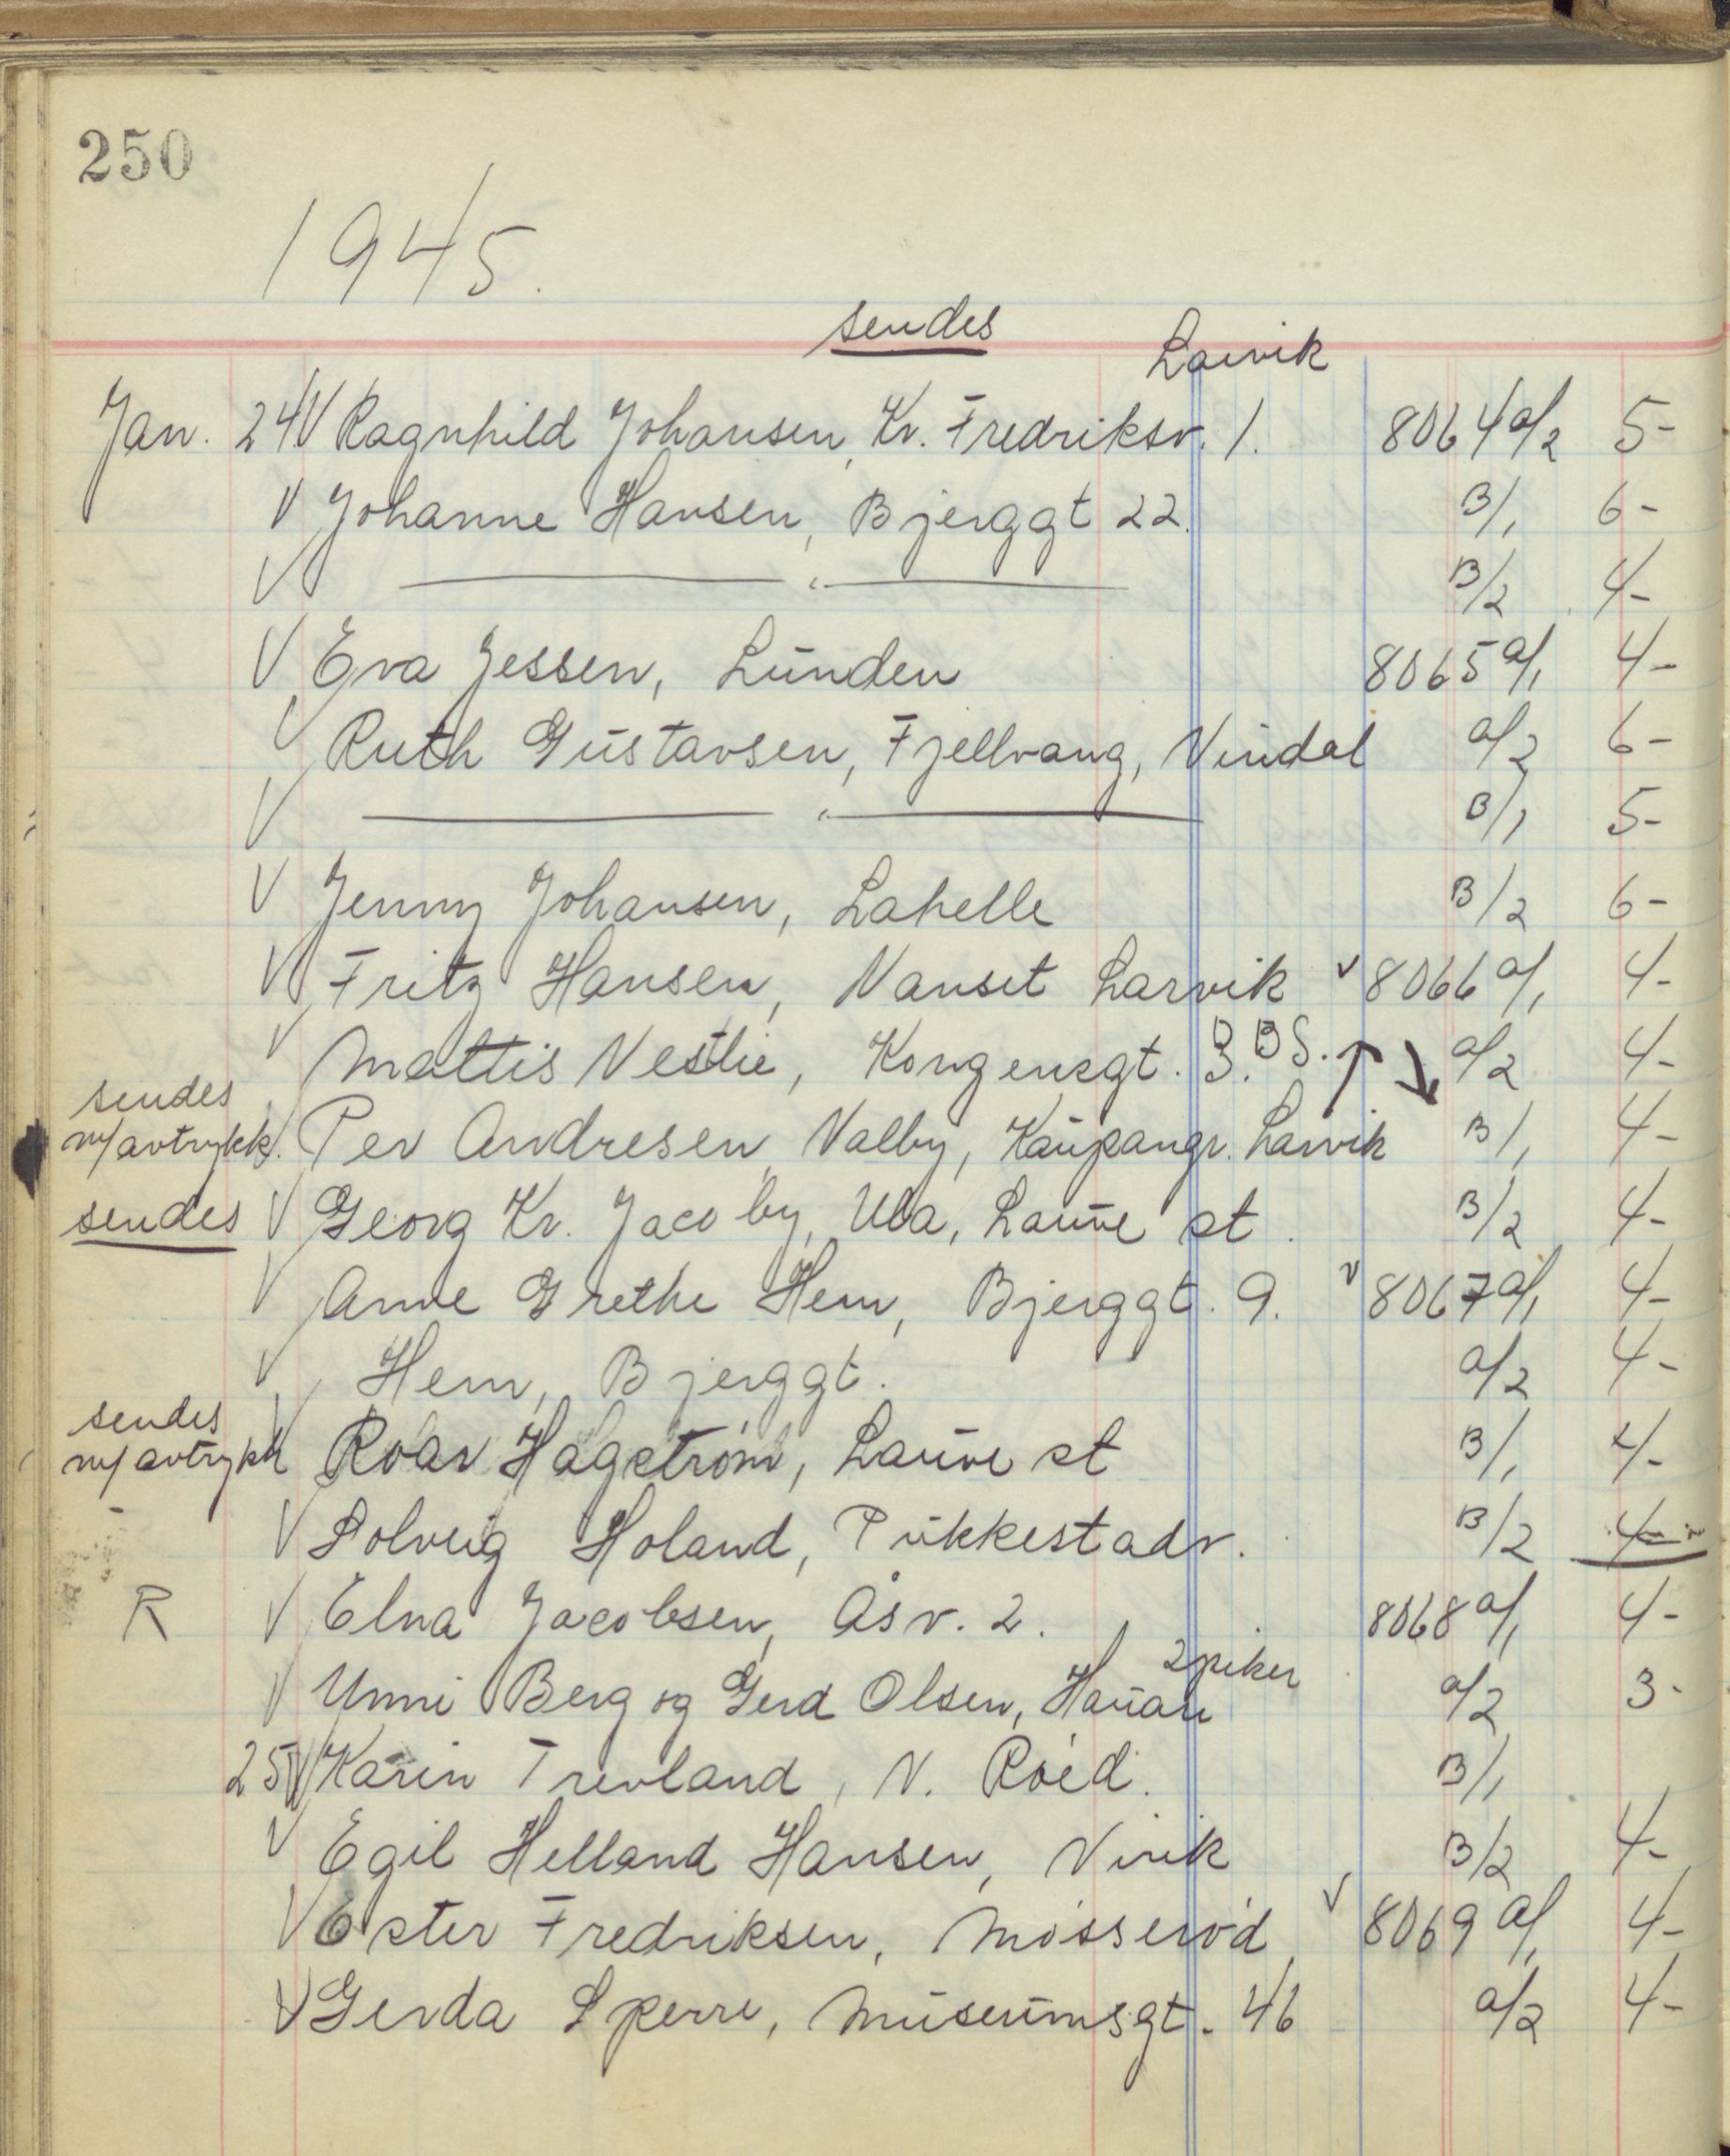 250
1945.
sendes
Larvik
Jan. 24 V Ragnhild Johansen, Kr. Fredriksv. 1. 8064 a/2 5-
V Johanne Hansen, Bjerggt 22. B/1 6-
V — " — B/2 4-
V Eva Jessen, Lunden 8065 a/1 4-
V Ruth Gustavsen, Fjellvang, Vindal a/2 6-
V — " — B/1 5-
V Jenny Johansen, Lahelle B/2 6-
V Fritz Hansen, Nanset Larvik v 8066 a/1 4-
V Mattis Vestlie, Kongensgt. 3. B S. ↑ ↘ a/2 4-
sendes
m/avtrykk. Per Andresen, Valby, Kaupangv. Larvik B/1 4-
sendes V Georg Kr. Jacoby, Ula, Lauve st. B/2 4-
V Anne Grethe Hem, Bjerggt. 9. v 8067 a/1 4-
V Hem, Bjerggt. a/2 4-
sendes
m/avtrykk V Roar Hagstrøm, Lauve st B/1 4-
V Solveig Holand, Pukkestadv. B/2 4-
R V Elna Jacobsen, Åsv. 2. 8068 a/1 4-
2 piker
V Unni Berg og Gerd Olsen, Hauan a/2 3-
25 V Karin Trevland, N. Røed. B/1
V Egil Helland Hansen, Virik B/2 4-
V Ester Fredriksen, Mosserød v 8069 a/1 4-
V Gerda Sperre, Museumsgt. 46 a/2 4-